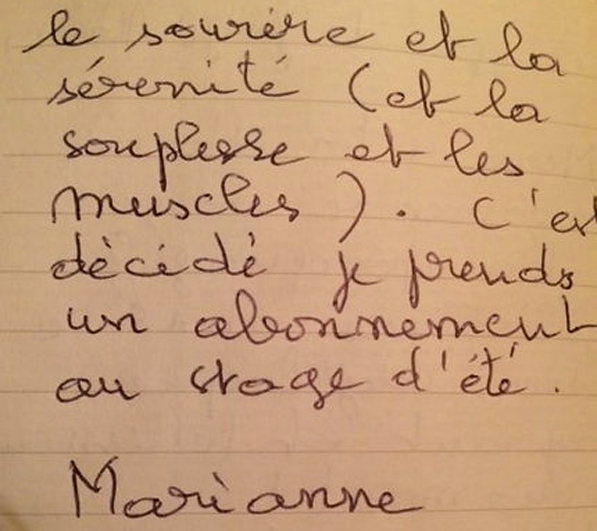 le sourire et la
sérénité (et la
souplesse et les
muscles). C'est
décidé je prends
un abonnement
au stage d'été.
Marianne